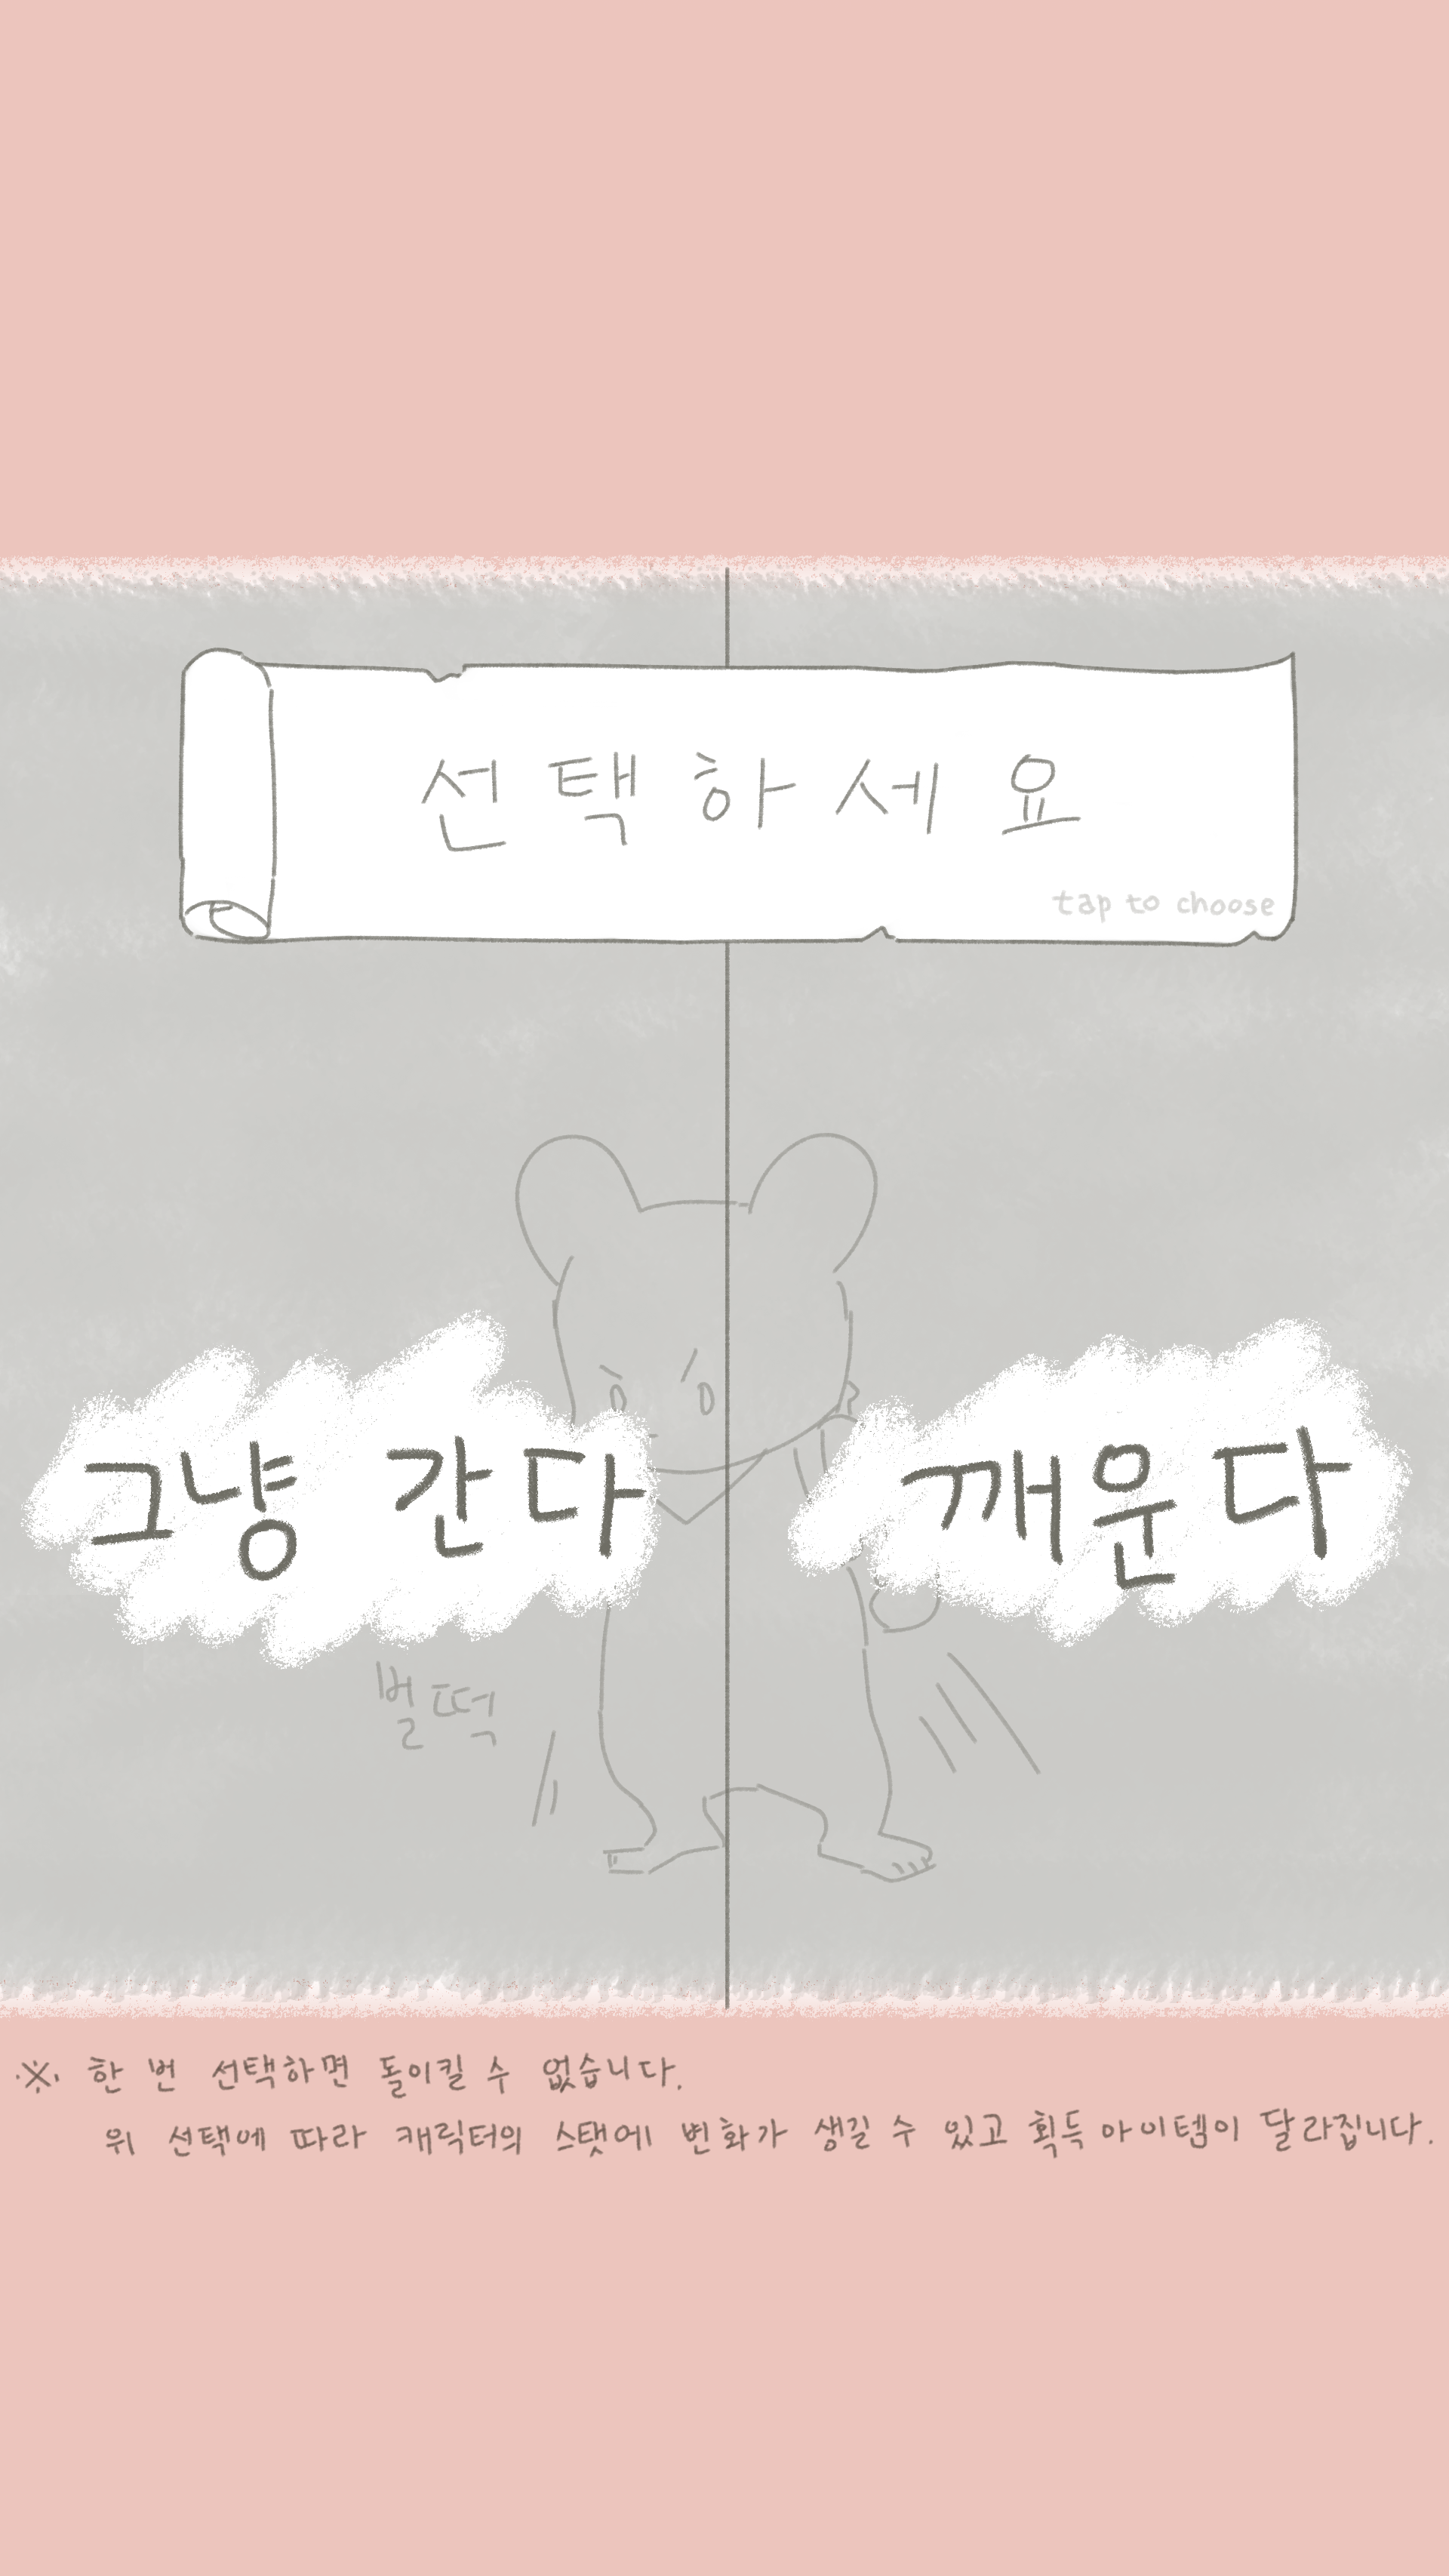 선택하세요
tap to choose
그냥 간다
깨운다
벌떡
※ 한 번 선택하면 돌이킬 수 없습니다.
위 선택에 따라 캐릭터의 스탯에 변화가 생길 수 있고 획득 아이템이 달라집니다.